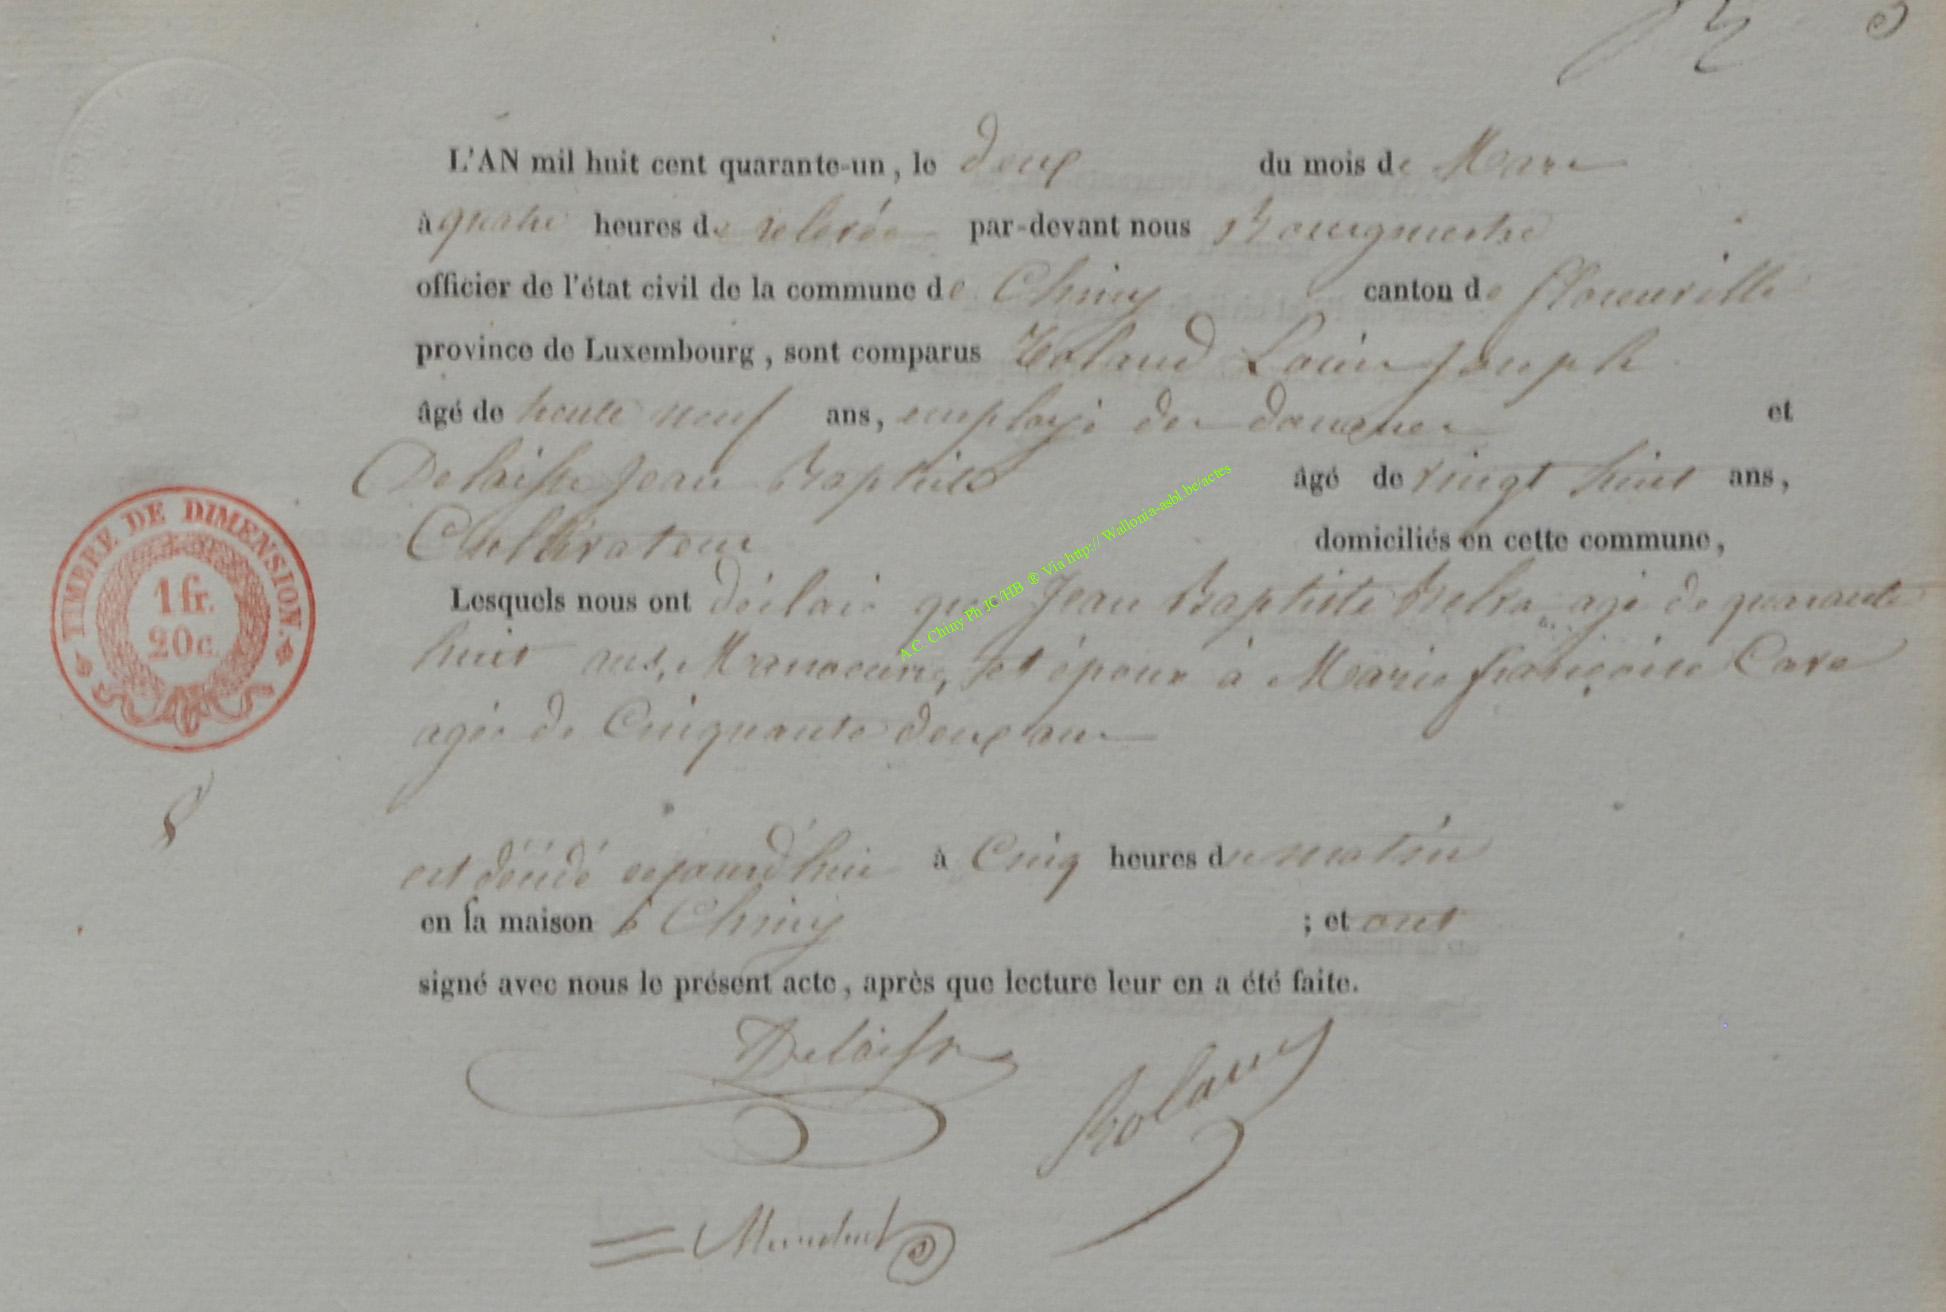 L'AN mil huit cent quarante-un, le deux du mois de Mars
à quatre heures de relevée par-devant nous Bourgmestre
officier de l'état civil de la commune de Chiny canton de florenville
province de Luxembourg, sont comparus Roland Louis Joseph
âgé de trente neuf ans, employé des douanes et
Delaisse Jean Baptiste âgé de vingt huit ans,
Cultivateur domiciliés en cette commune,
Lesquels nous ont déclaré que Jean Baptiste agé de quarante
huit ans, Manoeuvre, et époux à Marie françoise
agée de Cinquante deux ans
est décédé aujourd'hui à Cinq heures du matin
en sa maison à Chiny ; et ont
signé avec nous le présent acte, après que lecture leur en a été faite.
Delaisse Roland
TIMBRE DE DIMENSION.
1 fr.
20c.
A.C. Chiny Ph JC/HB ® Via http://Wallonia-asbl.be/actes